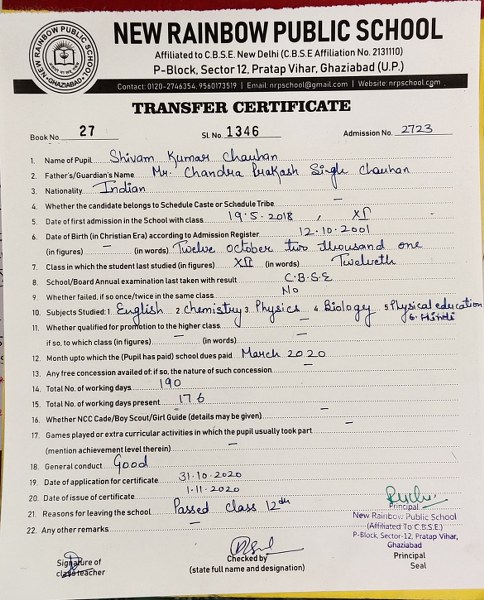 NEW RAINBOW PUBLIC SCHOOL
NEW RAINBOW PUBLIC SCHOOL GHAZIABAD
Affiliated to C.B.S.E. New Delhi (C.B.S.E Affiliation No. 2131110)
P-Block, Sector 12, Pratap Vihar, Ghaziabad (U.P.)
Contact: 0120-2746354, 9560173519 | Email: nrpschool@gmail.com | Website: nrpschool.com
TRANSFER CERTIFICATE
Book No. 27 Sl. No. 1346 Admission No. 2723
1. Name of Pupil Shivam Kumar Chauhan
2. Father's/Guardian's Name Mr. Chandra Prakash Singh Chauhan
3. Nationality Indian
4. Whether the candidate belongs to Schedule Caste or Schedule Tribe —
5. Date of first admission in the School with class 19.5.2018 , XI
6. Date of Birth (in Christian Era) according to Admission Register 12.10.2001
(in figures) — (in words) Twelve october two thousand one
7. Class in which the student last studied (in figures) XII (in words) Twelveth
8. School/Board Annual examination last taken with result C.B.S.E
9. Whether failed, if so once/twice in the same class No
10. Subjects Studied: 1. English 2. Chemistry 3. Physics 4. Biology 5. Physical education
6. Hindi
11. Whether qualified for promotion to the higher class —
if so, to which class (in figures) — (in words) —
12. Month upto which the (Pupil has paid) school dues paid March 2020
13. Any free concession availed of: if so, the nature of such concession —
14. Total No. of working days 190
15. Total No. of working days present 176
16. Whether NCC Cade/Boy Scout/Girl Guide (details may be given) —
17. Games played or extra curricular activities in which the pupil usually took part
(mention achievement level therein) —
18. General conduct Good
19. Date of application for certificate 31.10.2020
20. Date of issue of certificate 1.11.2020
21. Reasons for leaving the school Passed class 12th
22. Any other remarks —
Principal
New Rainbow Public School
(Affiliated To C.B.S.E.)
P-Block, Sector-12, Pratap Vihar,
Ghaziabad
Signature of
class teacher
Checked by
(state full name and designation)
Principal
Seal